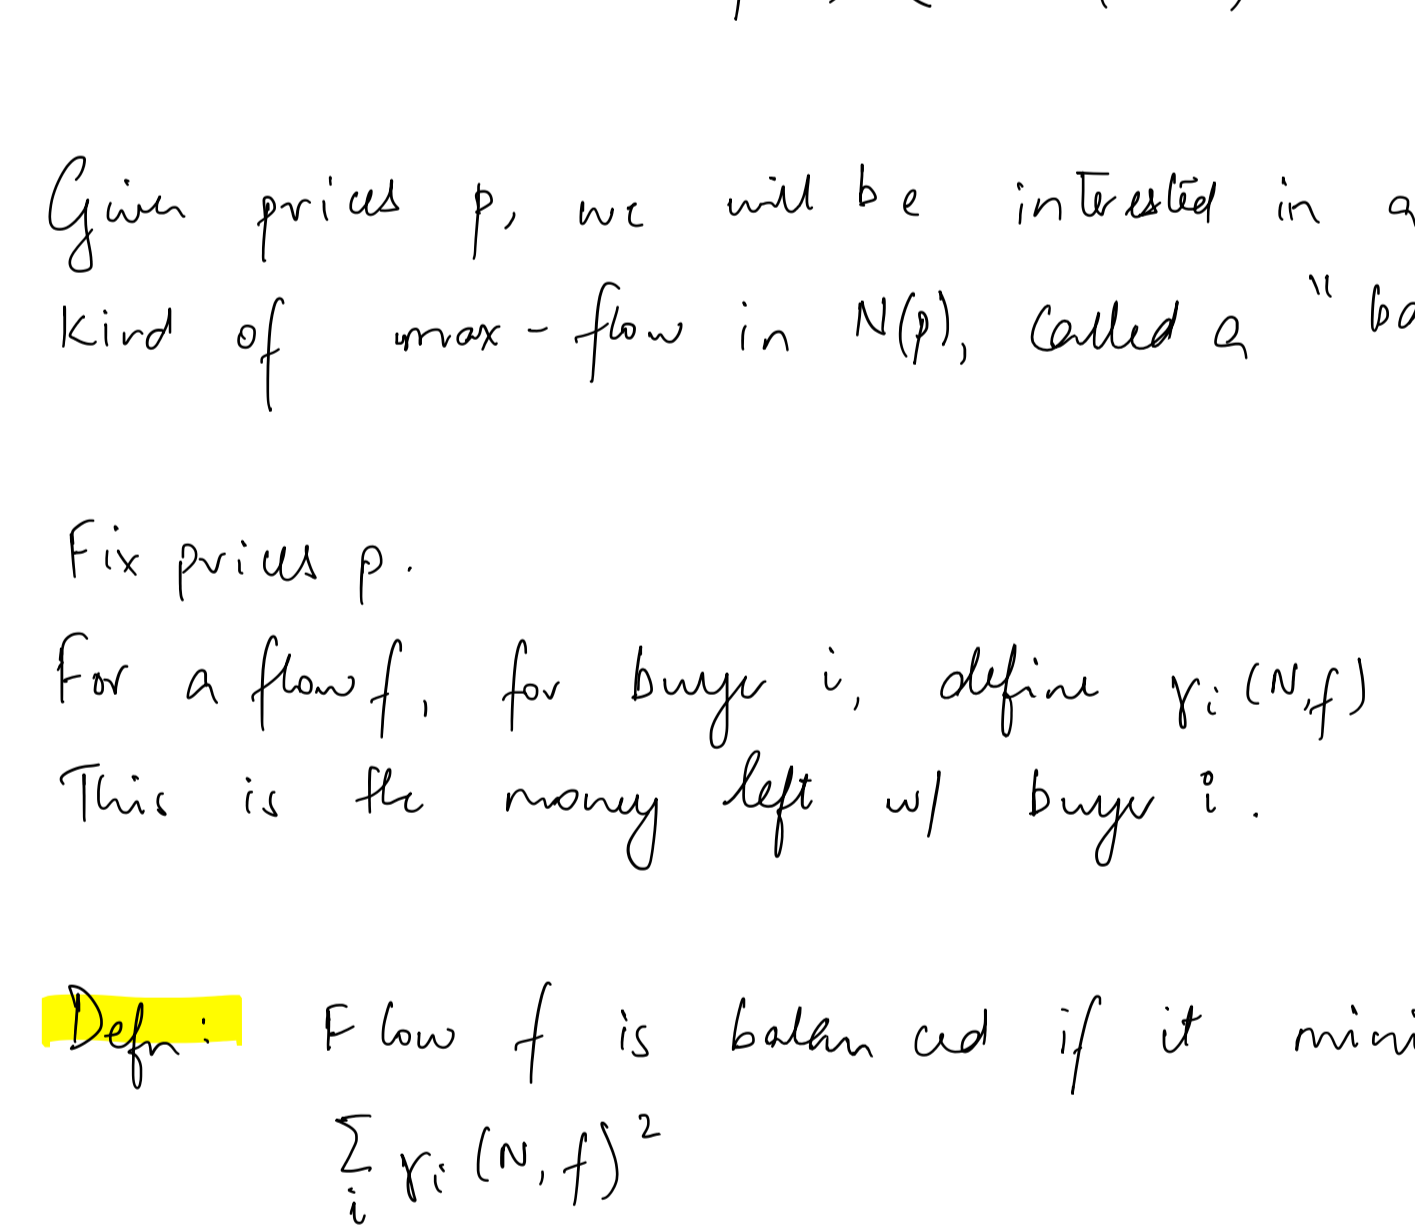 Given prices p, we will be interested in a
kind of max-flow in N(p), called a "ba
Fix prices p.
For a flow f, for buyer i, define γi(N,f)
This is the money left w/ buyer i.
Defn: Flow f is balanced if it mini
∑i γi(N,f)²